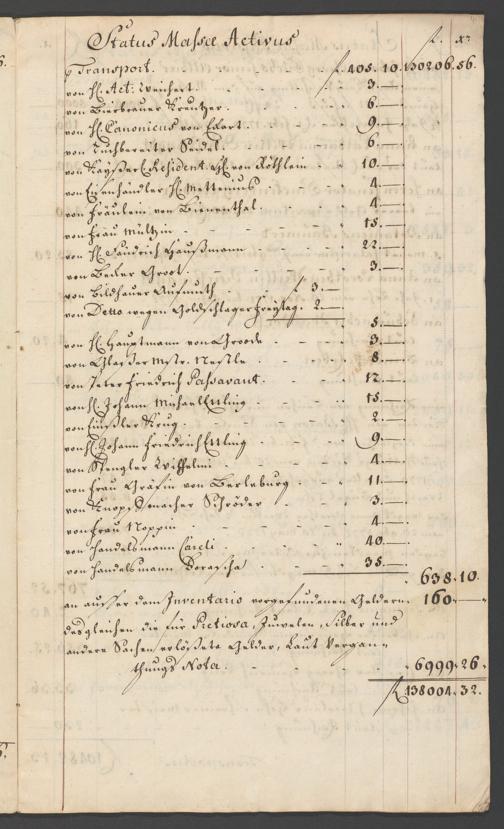 Status Massæ Activus f. xr
p Transport. f 405. 10. 130206. 56.
von H. Act. Weichert. 3.
von Bierbrauer Kreutzer. 6.
von H. Canonicus von Eckart. 9.
von Tuchbereiter Seidel. 6.
von Kayßerl. Resident H. von Röthlein 10.
von Eisenhändler H. Mettenius 4.
von Fräulein von Bienenthal. 4.
von Frau Mültzin 15.
von H. Haußmann 22.
von Becker Groot. 3.
von Bildhauer Aufmuth f 3.
von Detto wegen Goldschlager Freytag. 2.
5.
von H. Hauptmann von Groode 3.
von Glaßer Mstr. Nestle 8.
von Peter Friedrich Passavant. 12.
von H. Johann Michael Ettling 15.
von Krug. 2.
von H. Johann Friedrich Ettling 9.
von Spengler Wilhelmi 4.
von Frau Gräfin von Berleburg 11.
von Knopfmacher Schröder 3.
von Frau Noppin 4.
von Handelsmann Carli 40.
von Handelsmann 35.
638. 10.
an ausser dem Inventario vorgefundenen Geldern. 160.
desgleichen die für Pretiosa, Juwelen, Silber und
andere Sachen erlößete Gelder, Laut Vergan-
thungs Nota. 6999. 26.
f 138004. 32.